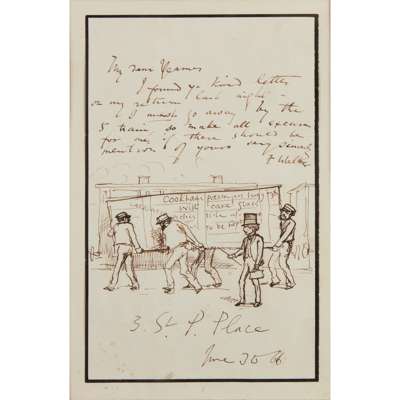 My dear Yeames
I found yr kind letter
on my return last night -
I must go away by the
5 train so make all excuses
for me if there should be
mention of yours very sincerely
F Walker
Cookham
with care glass
side
to be kept
3. St P. Place
June 30 66